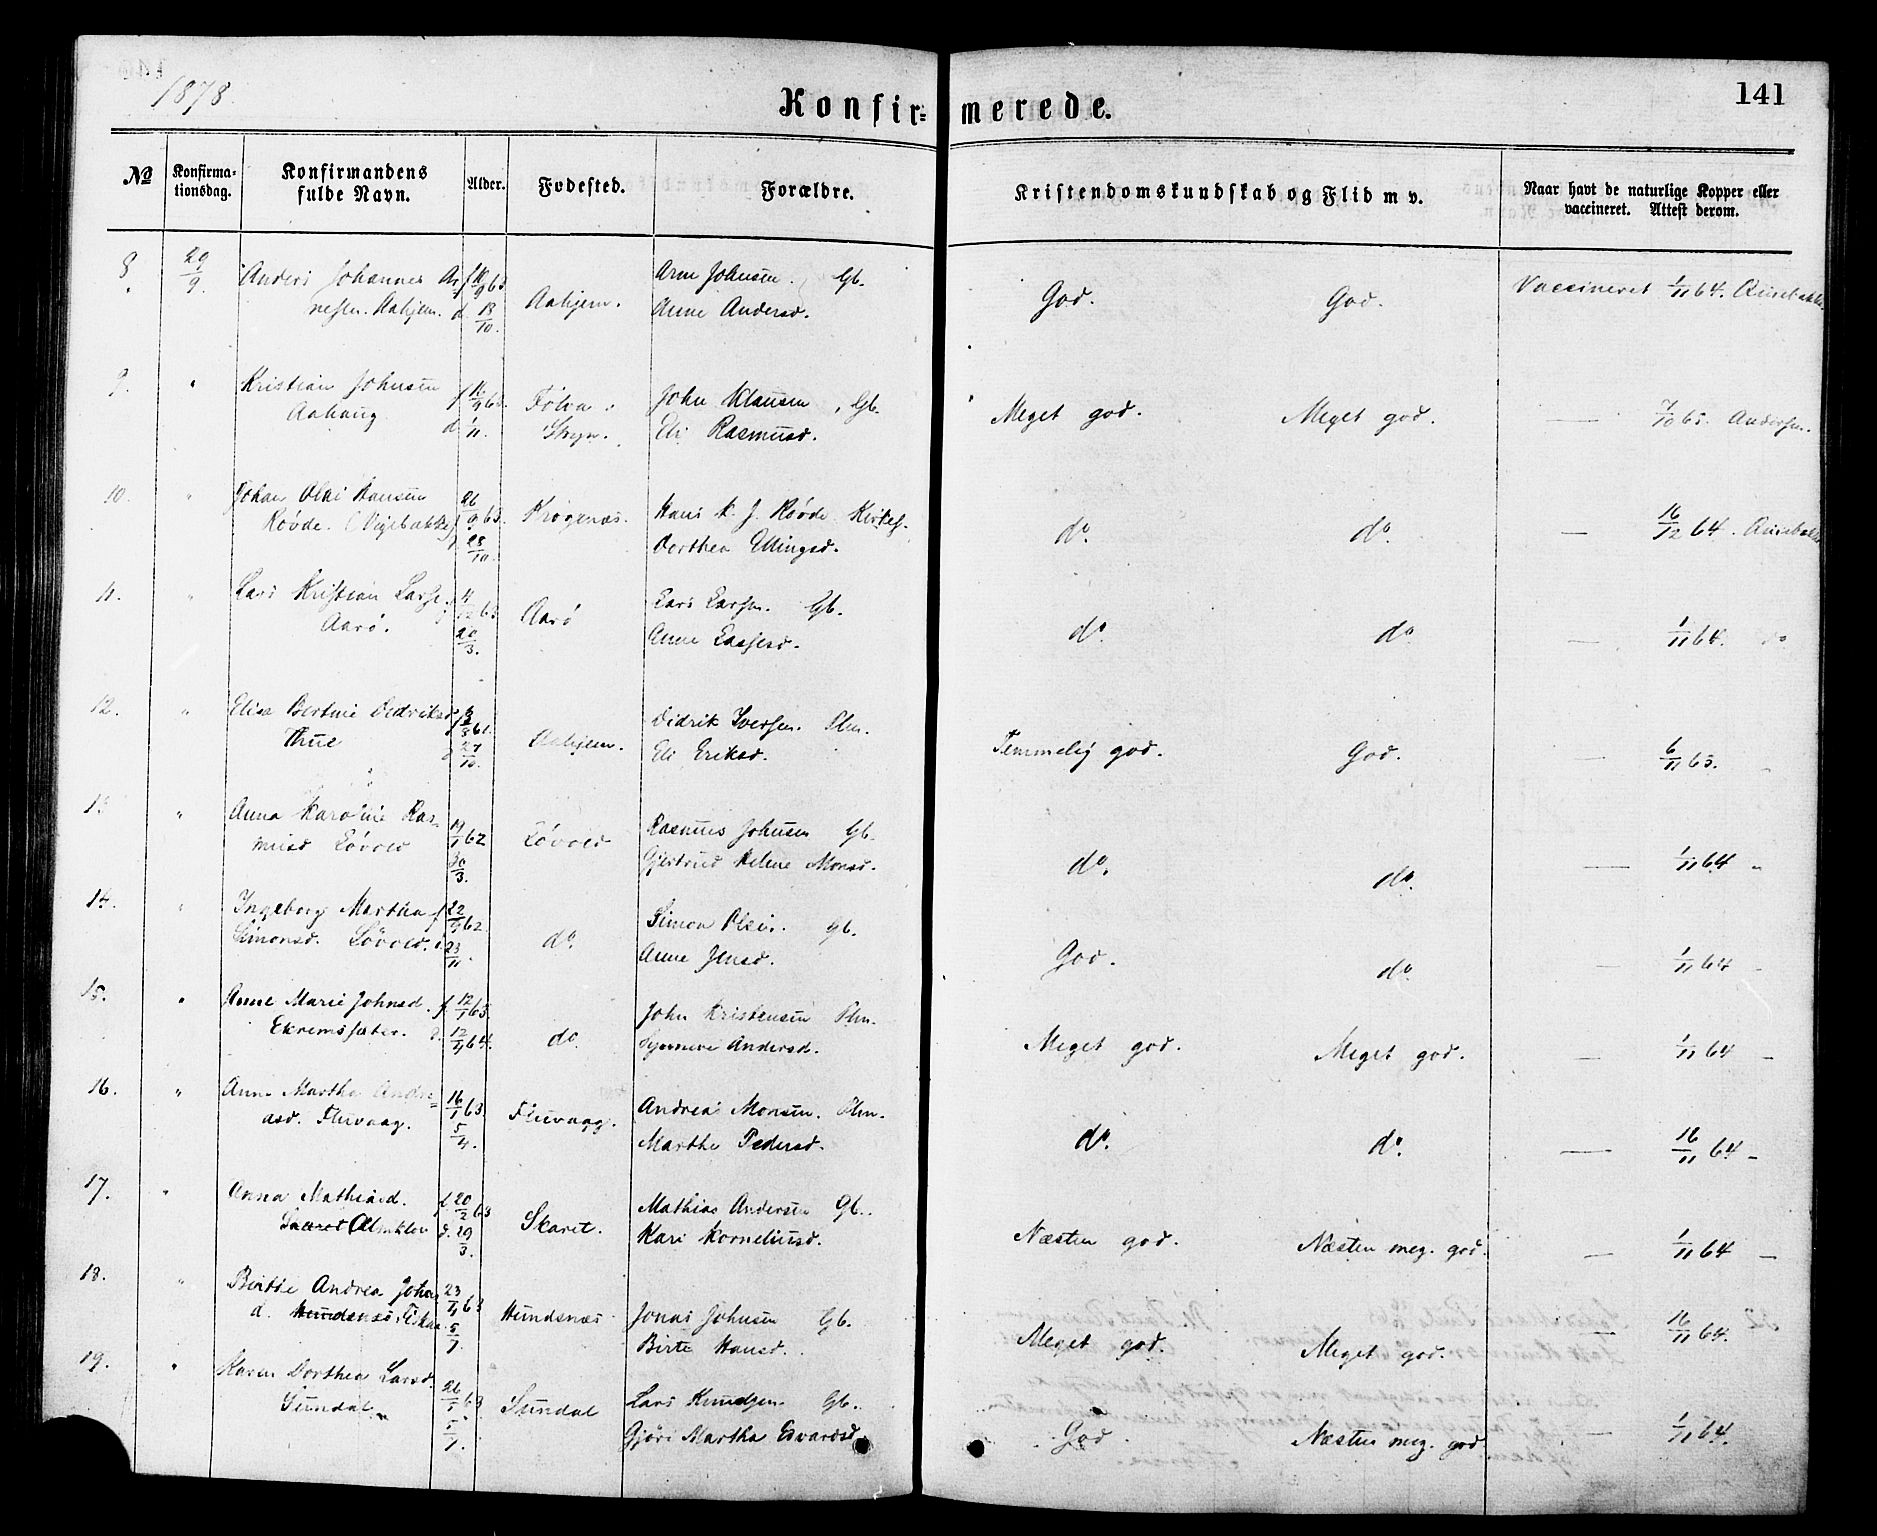 1878.
Konfir=merede.
141
No
Konfirma-
tionsdag.
Konfirmandens
fulde Navn.
Alder.
Fødested.
Forældre.
Kristendomskundskab og Flid m v.
Naar havt de naturlige Kopper eller
vaccineret. Attest derom.
8 29/9. Anders Johannes Ar- f. Arne Johnsen. Gb.
nesen. Aahjem. d. 18/10. Aahjem. Anne Andersd. God. God. Vaccineret 1/11 64. Aurebakke
9. " Kristian Johnsen f 16/9 63. John Klausen, Gb.
Aahaug d. 1/11. Stryn. Eli Rasmusd. Meget god. Meget god. — 7/10 65. Andersen.
10. " Johan Olai Hansen 26/9 63. Krogenæs. Hans K. J. Røvde Kirkes.
Røvde. 28/10. Dorthea Ellingsd. do. do. — 16/12 64. Aurebakke
11. " Lars Kristian Larse 4/12 63 Aarø Lars Larsen. Gb.
Aarø. 20/3. Anne Lassesd. do. do — 1/11 64. do
12. " Elisa Bertine Dedriksd Didrik Iversen. Plm.
Thue 27/10. Aahjem. Eli Eriksd. Temmelig god. God. — 6/11 63. -
13 " Anna Karoline Ras- 19/1 62 Løvold Rasmus Johnsen Gb.
musd Løvold 30/3. Gjertrud Helene Monsd. do. do. — 1/11 64 -
14. " Ingeborg Martha f 22/9 62 Simon Olsen. Gb.
Simonsd. Løvold. 23/11. do. Anne Jensd. God. do. — 1/11 64 -
15. " Anne Marie Johnsd. f. 12/1 63. John Kristensen Plm.
Ekremssæter. d. 12/4 64. do. Synneve Andersd. Meget god. Meget god. — 1/11 64 -
16. " Anne Martha Andre= 16/1 63 Fluvaag. Andreas Monsen. Plm.
asd. Fluvaag. 5/4. Marthe Pedersd. do. do. — 16/11 64 -
17. " Anna Mathiasd. f. 20/2 63 Mathias Andersen Gb.
Skaret Almklov d. 29/3. Skaret. Kari Korneliusd. Næsten god. Næsten meg. god. — 1/11 64 —
18. " Birthe Andrea Johns 23/4 63 Hundsnæs Jonas Johnsen Gb.
d. Hundsnæs 5/7 Birte Hansd. Meget god. Meget god. — 16/11 64.
19. " Karen Dorthea Larsd. 26/5 63 Lars Knudsen Gb.
Sundal. 5/7. Sundal Gjøri Martha Edvardsd. God. Næsten meg. god — 1/11 64.